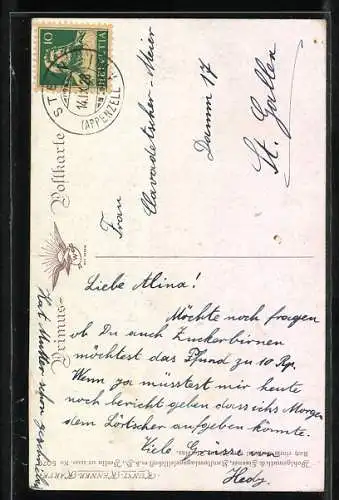 10
HELVETIA
STEIN
(APPENZELL)
Primus-Postkarte
Frau
Clavadetscher-Meier
Damm 17
St. Gallen
Liebe Alina!
Möchte noch fragen
ob Du auch Zuckerbirnen
möchtest das Pfund zu 10 Rp.
Wenn ja müsstest mir heute
noch bericht geben dass ichs Morgen
dem aufgeben könnte.
Viele Grüsse von
Hedy
Hat Mutter schon